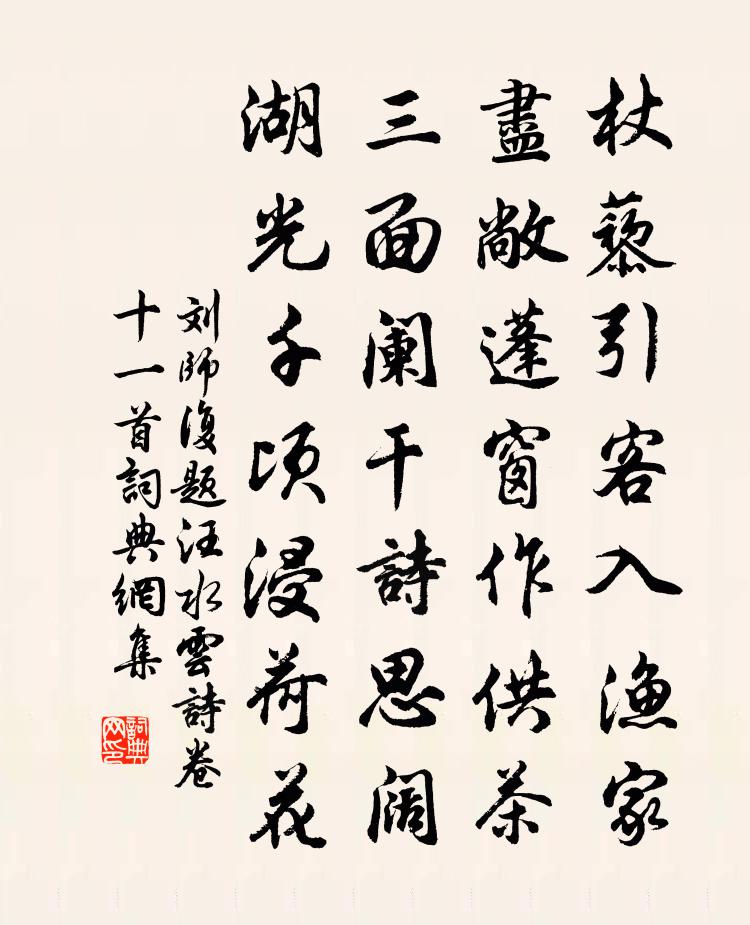 杖藜引客入渔家
盡敞蓬窗作供茶
三面阑干詩思阔
湖光千顷浸荷花
刘師復题汪水雲詩卷
十一首詞典網集
詞典网印